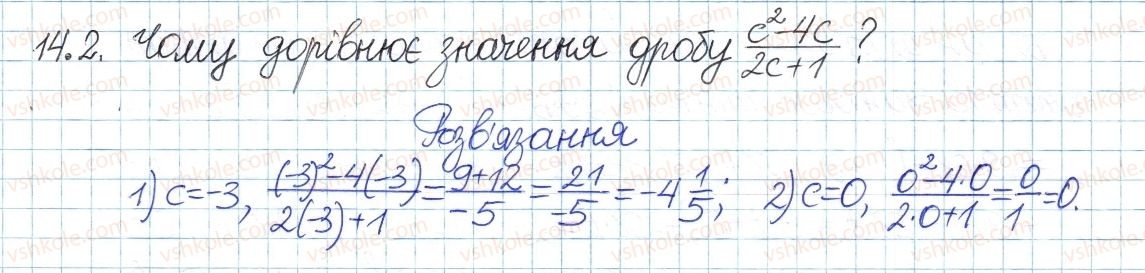 14.2. Чому дорівнює значення дробу (c²-4c)/(2c+1)?
Розв'язання
1) c=-3, ((-3)²-4(-3))/(2(-3)+1) = (9+12)/(-5) = 21/(-5) = -4 1/5; 2) c=0, (0²-4·0)/(2·0+1) = 0/1 = 0.